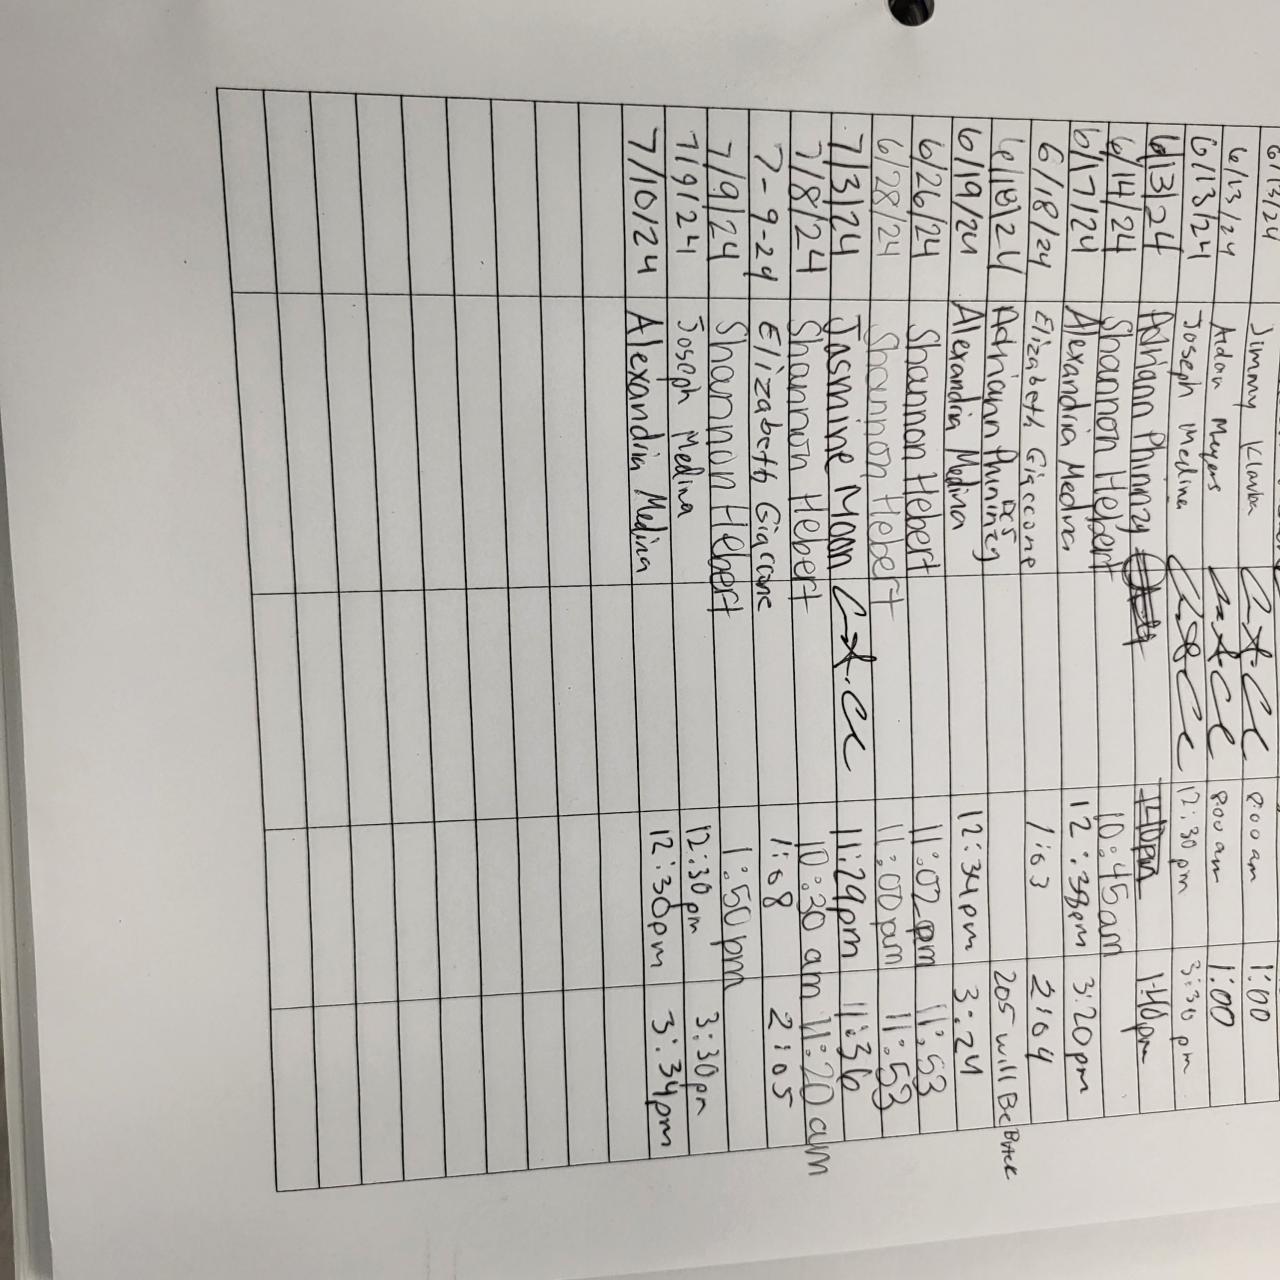 6/13/24
6/13/24 Jimmy 8:00am 1:00
6/13/24 Aidan Meyers 8:00am 1:00
6/13/24 Joseph Medina 12:30pm 3:30pm
6/13/24 Adriann Phinnzy 1:40pm
6/14/24 Shannon Hebert 10:45am
6/17/24 Alexandria Medina 12:38pm 3:20pm
6/18/24 Elizabeth Giaccone 1:03 2:04
6/18/24 Adriann Phninzy DCS 205 will Be Back
6/19/24 Alexandria Medina 12:34pm 3:24
6/26/24 Shannon Hebert 11:02pm 11:53
6/28/24 Shannon Hebert 11:00am 11:53
7/3/24 Jasmine Moon 11:29pm 11:36
7/8/24 Shannon Hebert 10:30am 11:20am
7-9-24 Elizabeth Giaccone 1:08 2:05
7/9/24 Shannon Hebert 1:50pm
7/9/24 Joseph Medina 12:30pm 3:30pm
7/10/24 Alexandria Medina 12:30pm 3:34pm